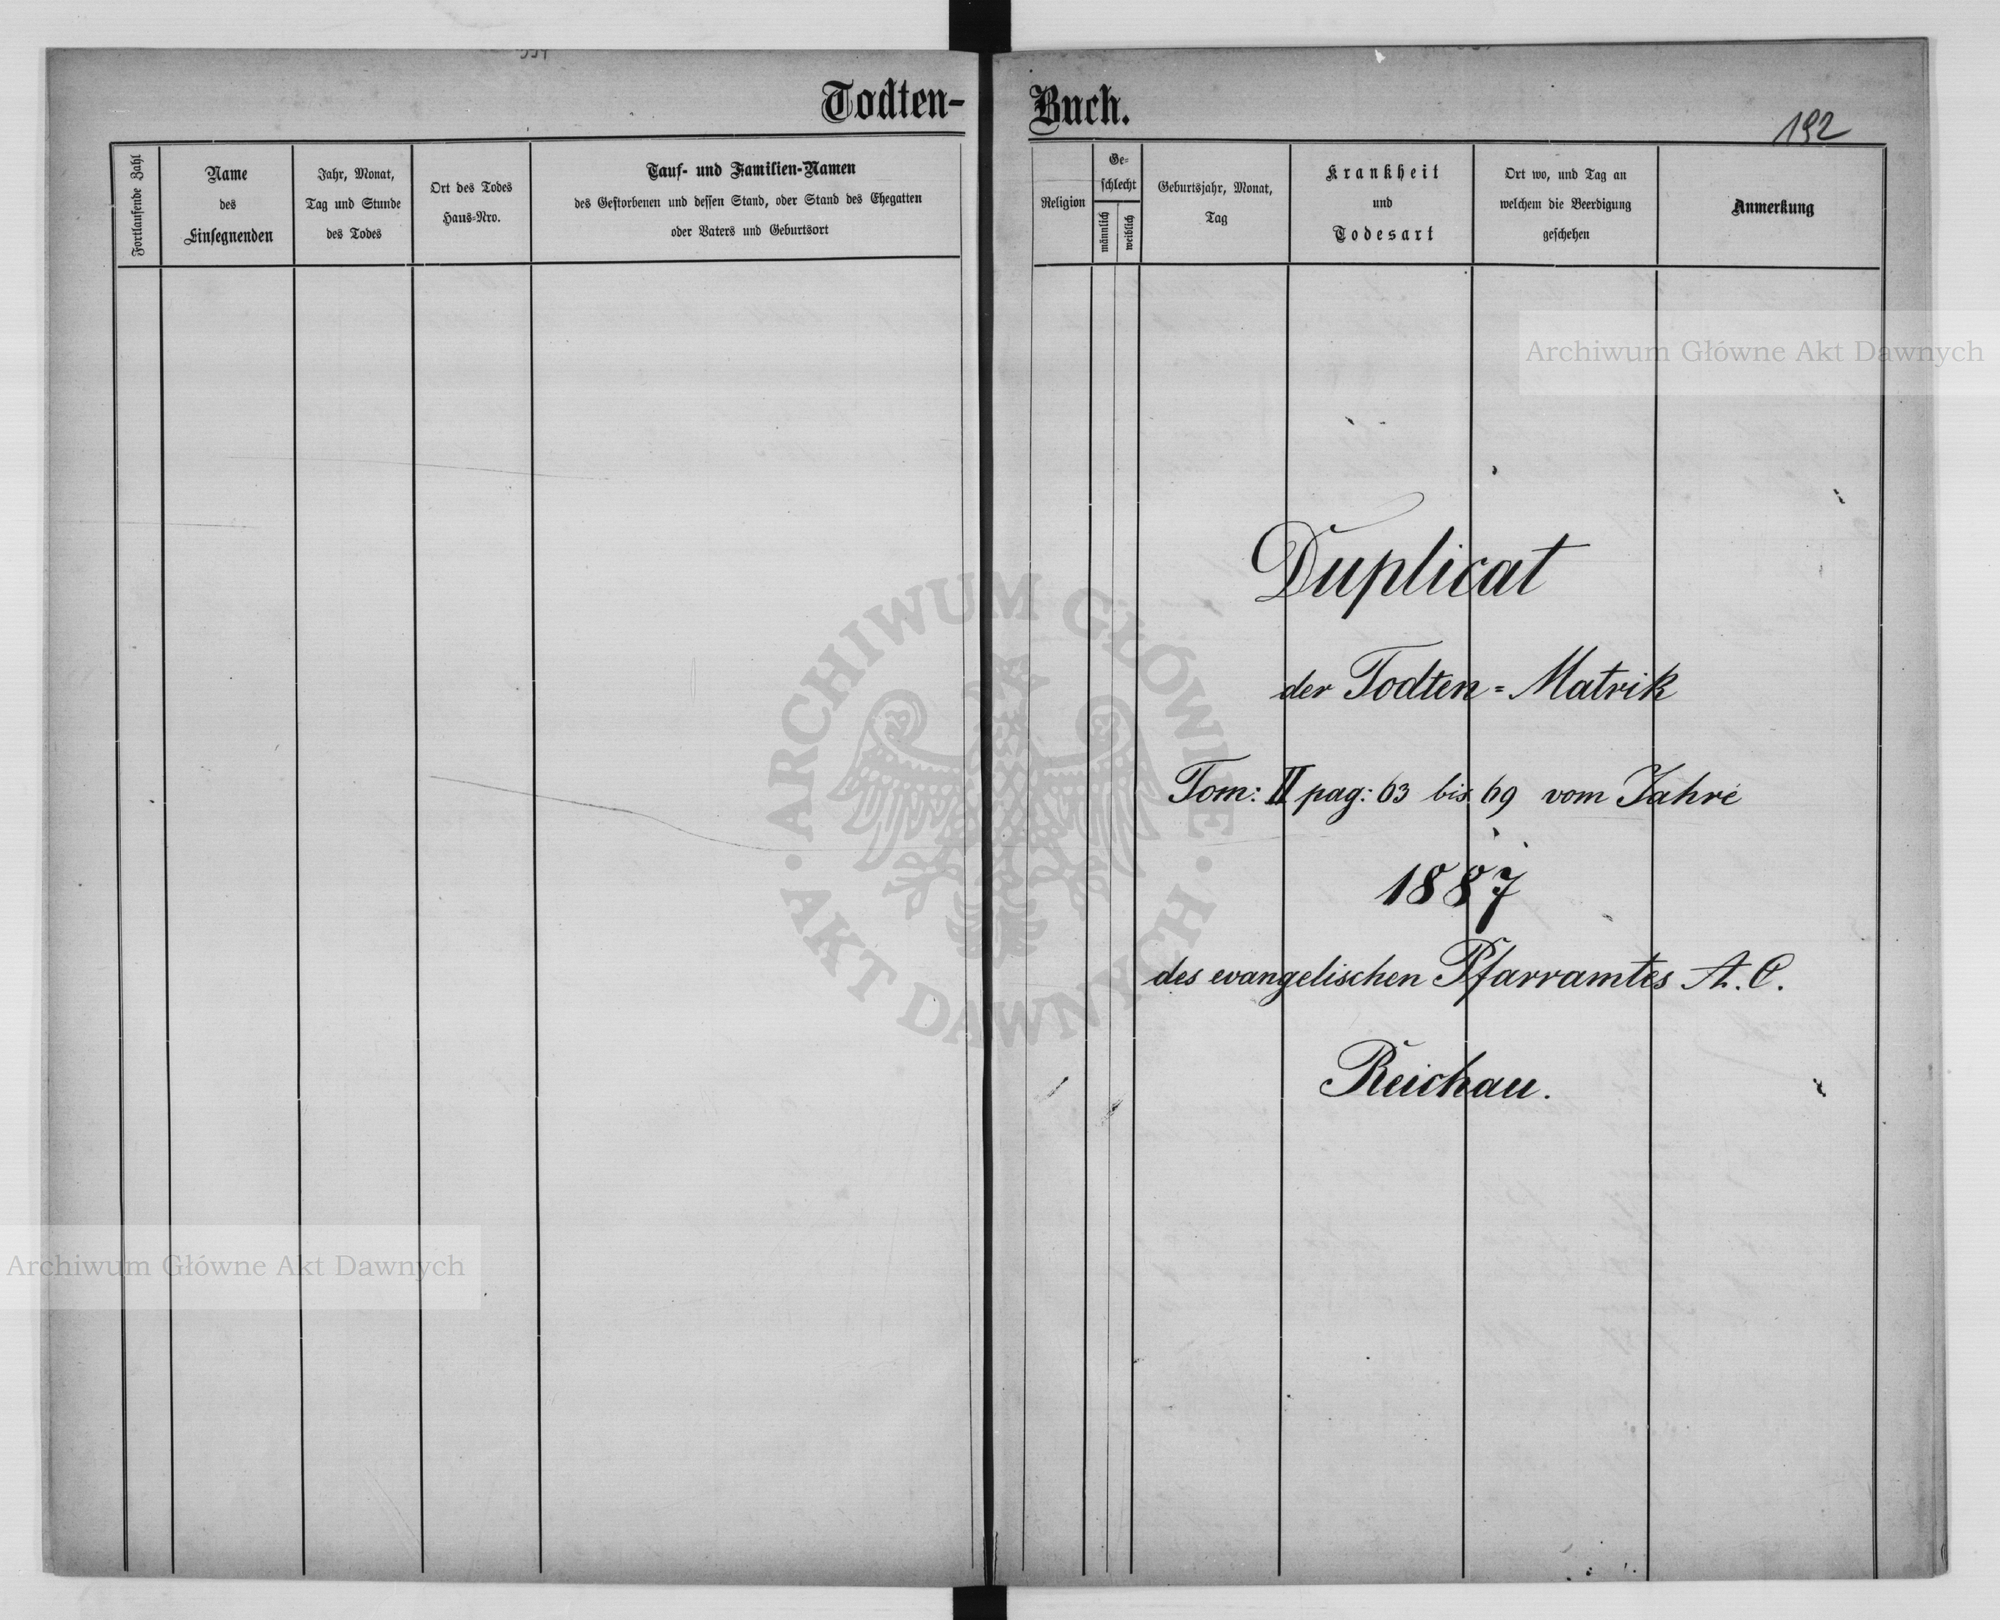 Todten-
Fortlaufende Zahl
Name
des
Einsegnenden
Jahr, Monat,
Tag und Stunde
des Todes
Ort des Todes
Haus-Nro.
Tauf- und Familien-Namen
des Gestorbenen und dessen Stand, oder Stand des Ehegatten
oder Vaters und Geburtsort
Buch.
192
Religion
Ge-
schlecht
männlich
weiblich
Geburtsjahr, Monat,
Tag
Krankheit
und
Todesart
Ort wo, und Tag an
welchem die Beerdigung
geschehen
Anmerkung
Archiwum Główne Akt Dawnych
Duplicat
der Todten=Matrik
Tom: II pag: 63 bis 69 vom Jahre
1887
des evangelischen Pfarramtes A. C.
Reichau.
ARCHIWUM GŁÓWNE
· AKT DAWNYCH ·
Archiwum Główne Akt Dawnych